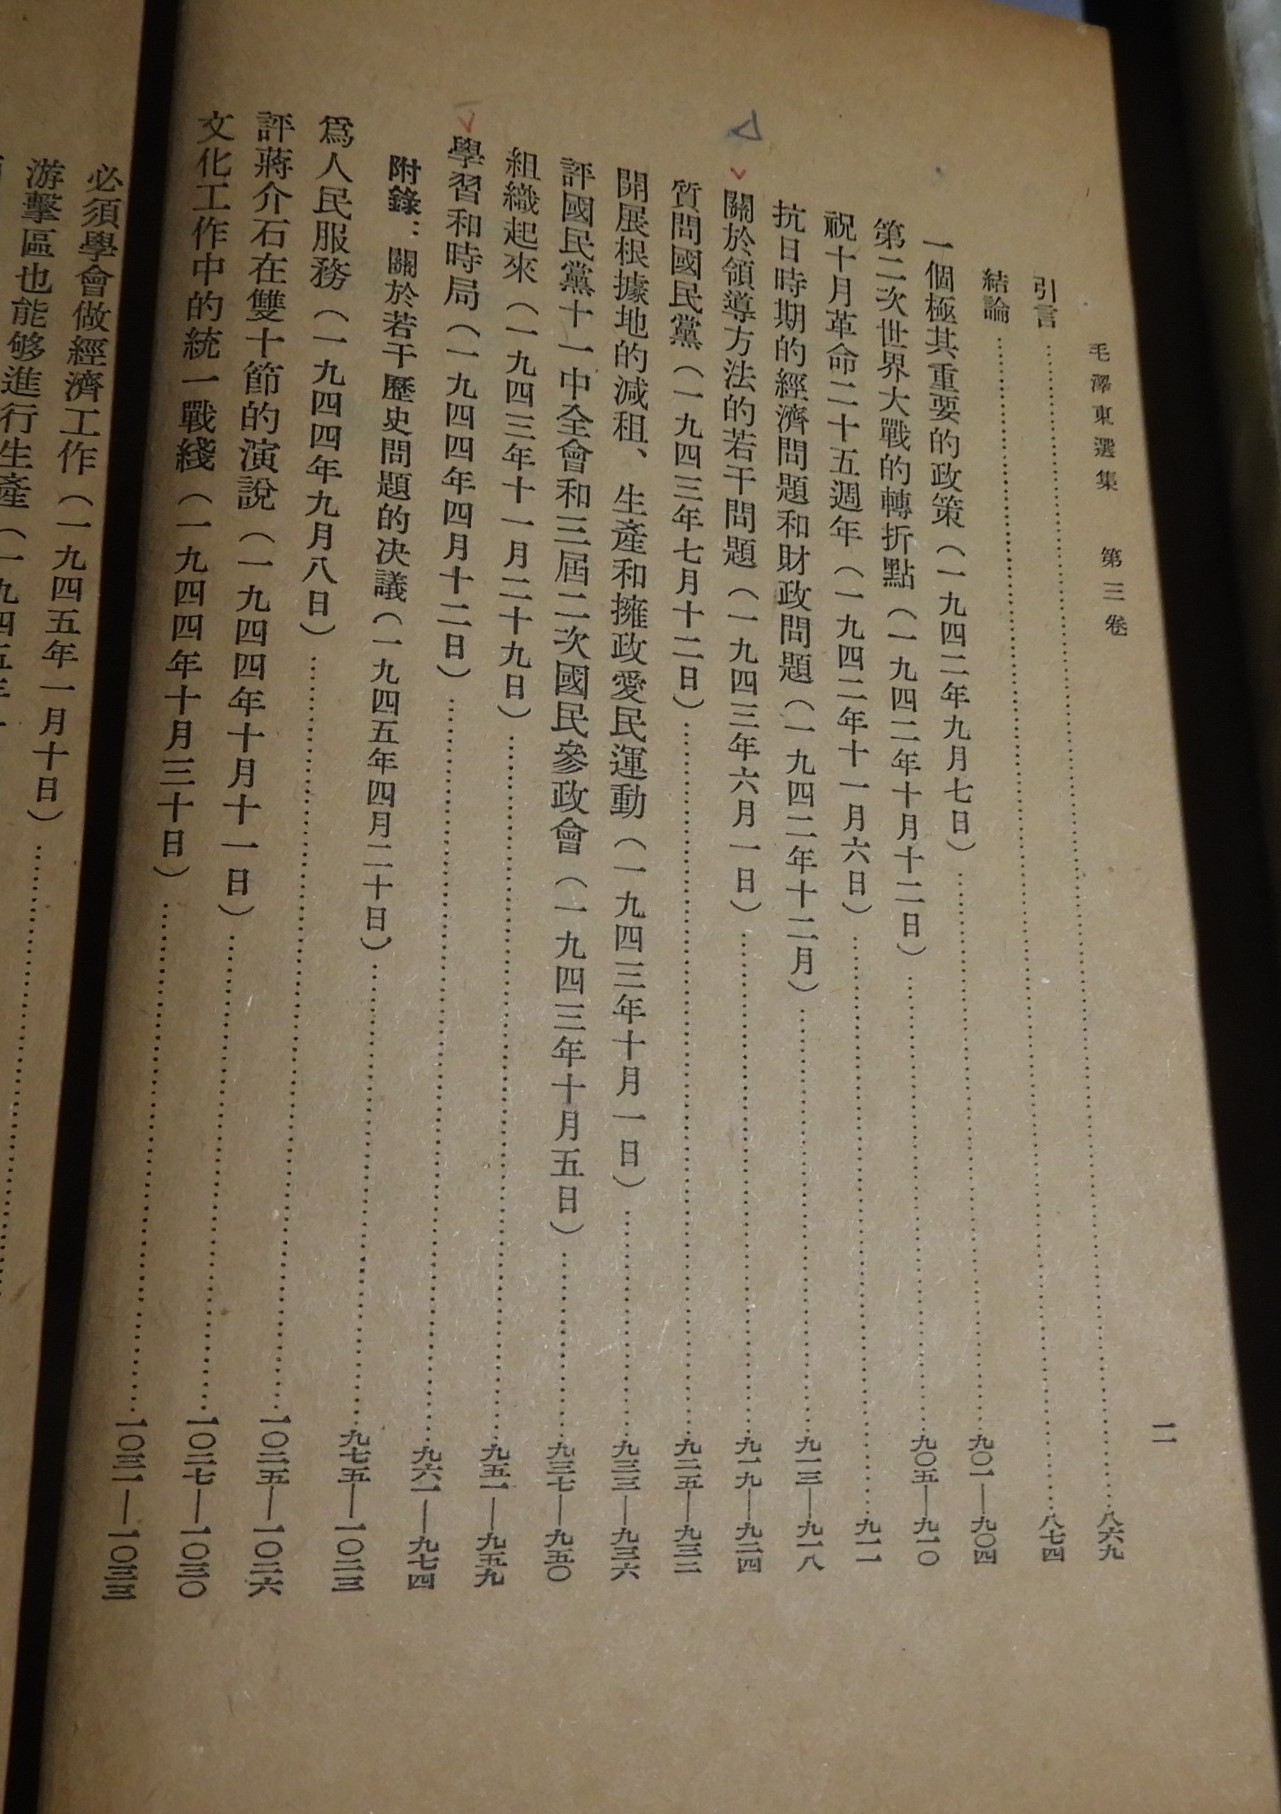 毛澤東選集 第三卷
二
引言……八六九
結論……八七四
一個極其重要的政策（一九四二年九月七日）……九〇一—九〇四
第二次世界大戰的轉折點（一九四二年十月十二日）……九〇五—九一〇
祝十月革命二十五週年（一九四二年十一月六日）……九一一
抗日時期的經濟問題和財政問題（一九四二年十二月）……九一三—九一八
關於領導方法的若干問題（一九四三年六月一日）……九一九—九二四
質問國民黨（一九四三年七月十二日）……九二五—九三二
開展根據地的減租、生產和擁政愛民運動（一九四三年十月一日）……九三三—九三六
評國民黨十一中全會和三屆二次國民參政會（一九四三年十月五日）……九三七—九五〇
組織起來（一九四三年十一月二十九日）……九五一—九五九
學習和時局（一九四四年四月十二日）……九六一—九七四
附錄：關於若干歷史問題的決議（一九四五年四月二十日）……九七五—一〇二三
爲人民服務（一九四四年九月八日）……一〇二五—一〇二六
評蔣介石在雙十節的演說（一九四四年十月十一日）……一〇二七—一〇三〇
文化工作中的統一戰綫（一九四四年十月三十日）……一〇三一—一〇三三
必須學會做經濟工作（一九四五年一月十日）……
游擊區也能够進行生產（一九四五年一